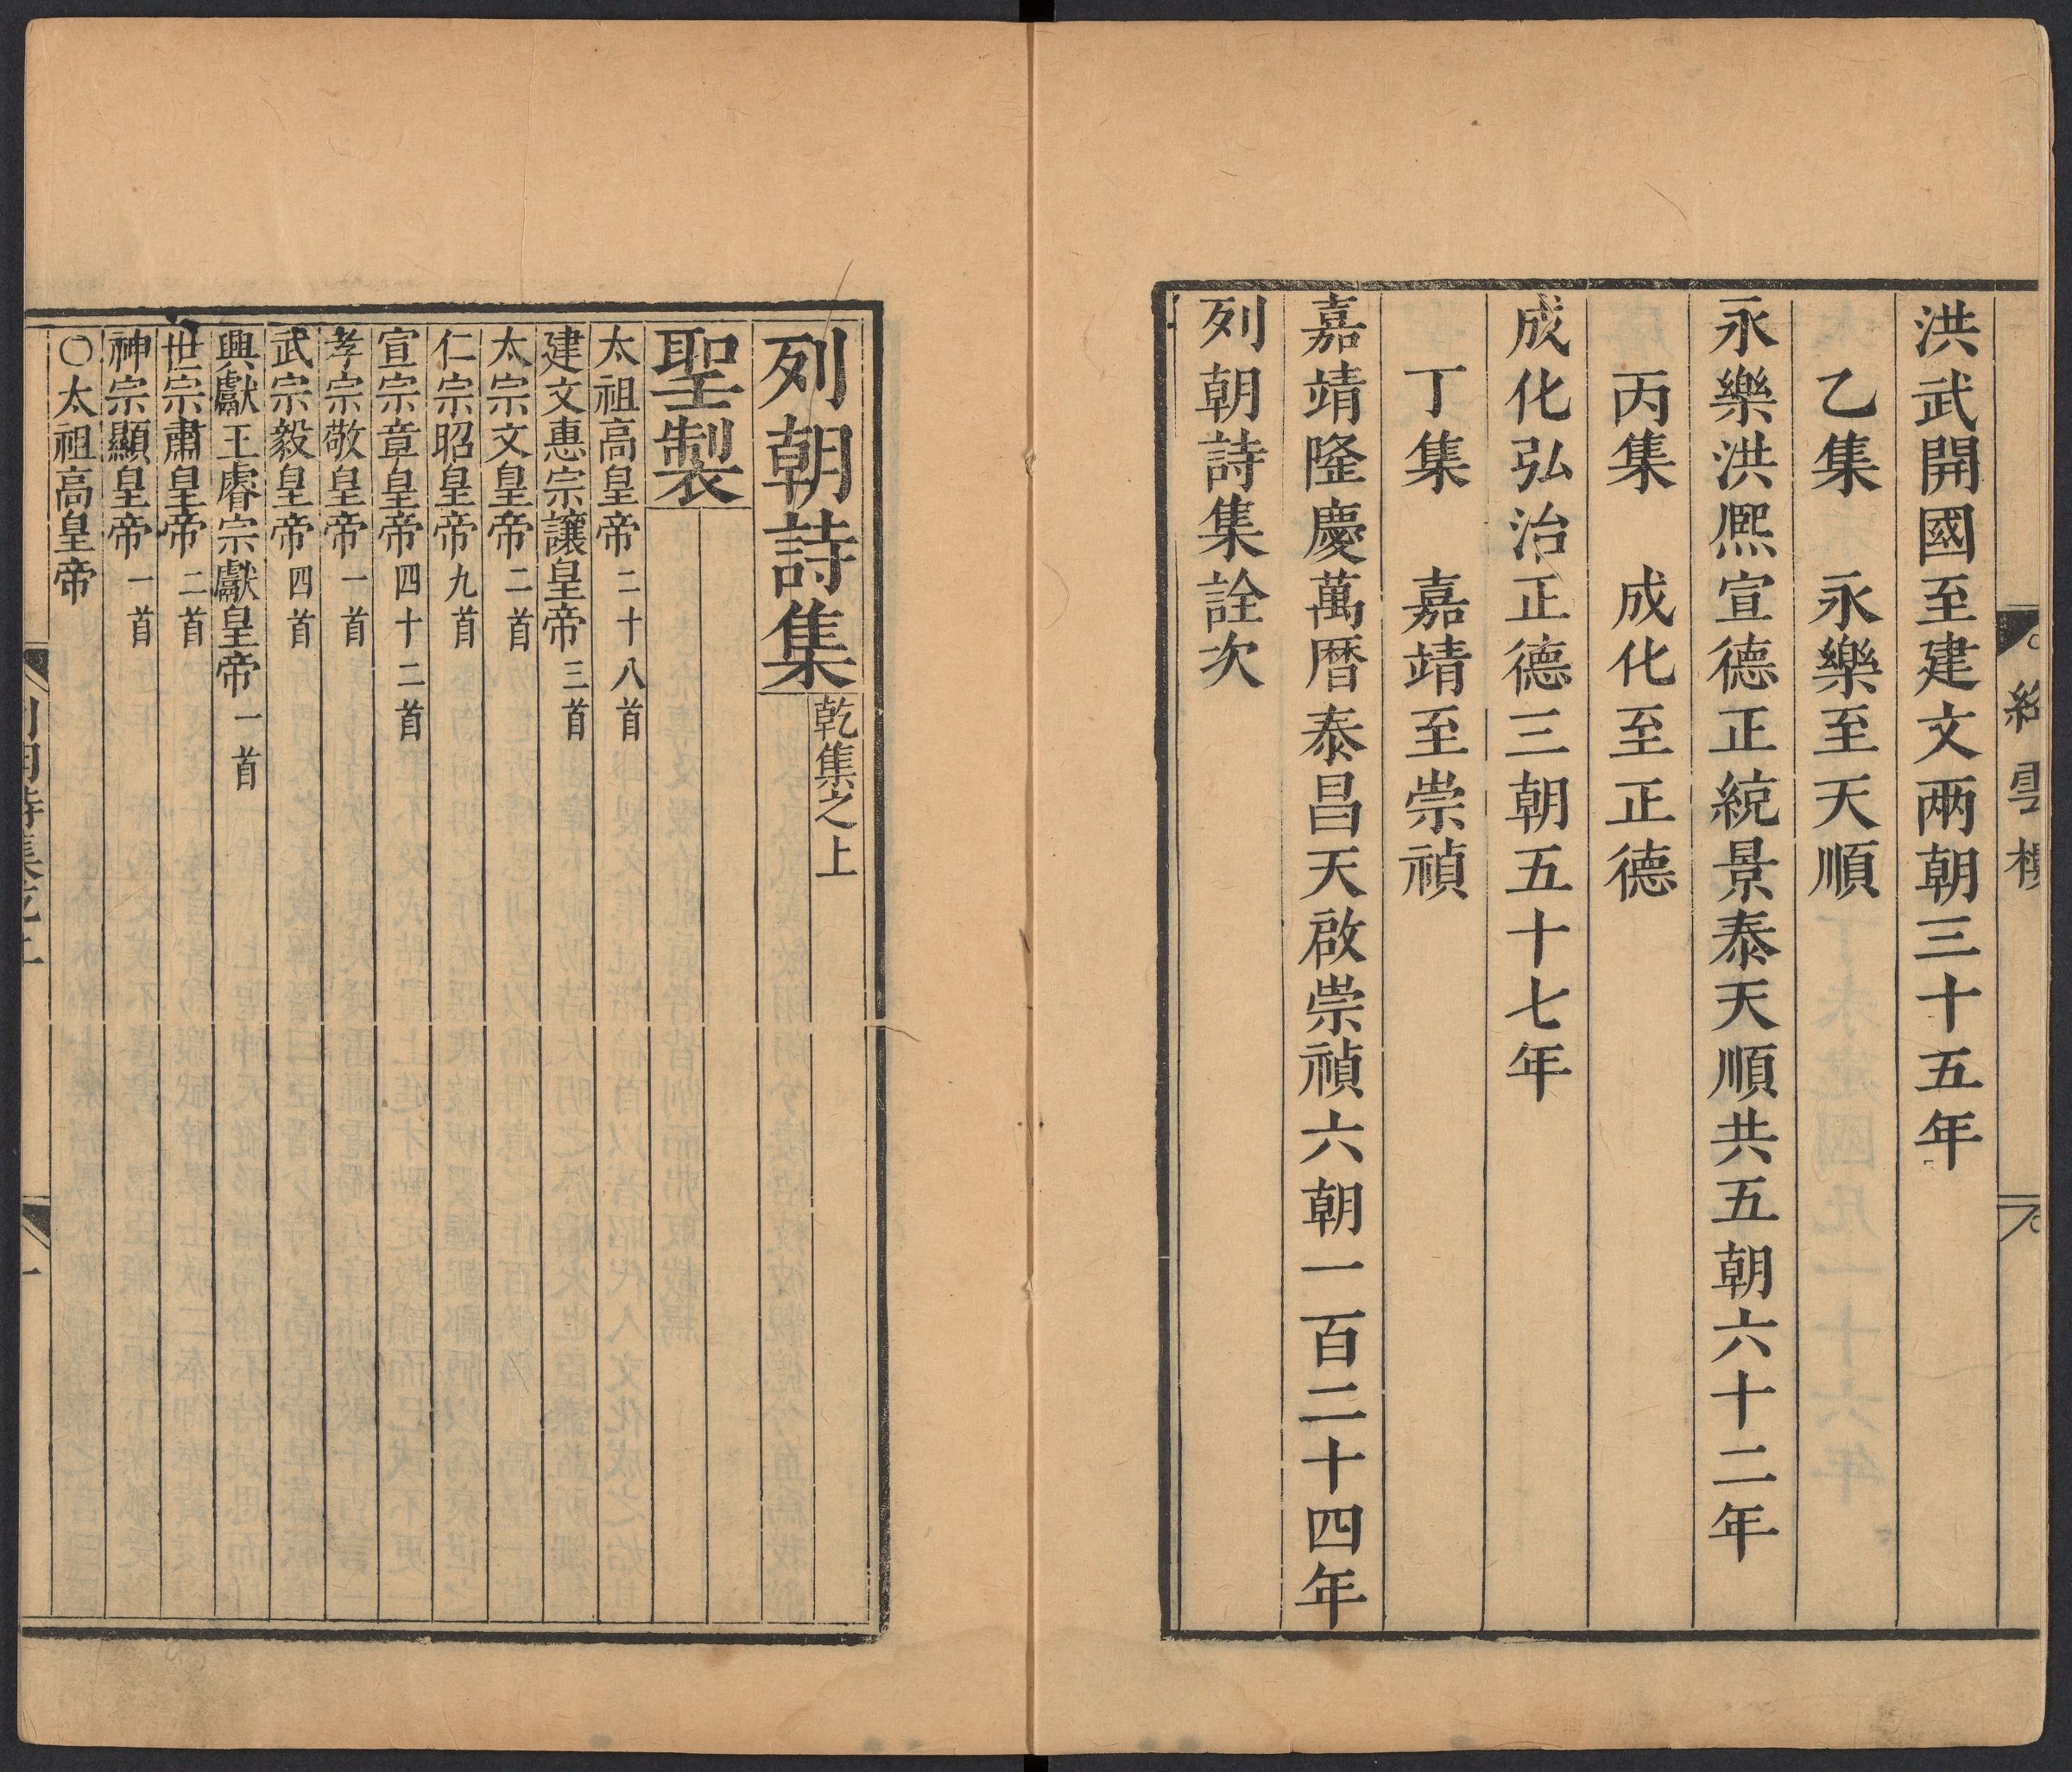 洪武開國至建文兩朝三十五年
乙集　永樂至天順
永樂洪熈宣德正統景泰天順共五朝六十二年
丙集　成化至正德
成化弘治正德三朝五十七年
丁集　嘉靖至崇禎
嘉靖隆慶萬曆泰昌天啟崇禎六朝一百二十四年
列朝詩集詮次
列朝詩集
乾集之上
聖製
太祖高皇帝二十八首
建文惠宗讓皇帝三首
太宗文皇帝二首
仁宗昭皇帝九首
宣宗章皇帝四十二首
孝宗敬皇帝一首
武宗毅皇帝四首
興獻王睿宗獻皇帝一首
世宗肅皇帝二首
神宗顯皇帝一首
○太祖高皇帝